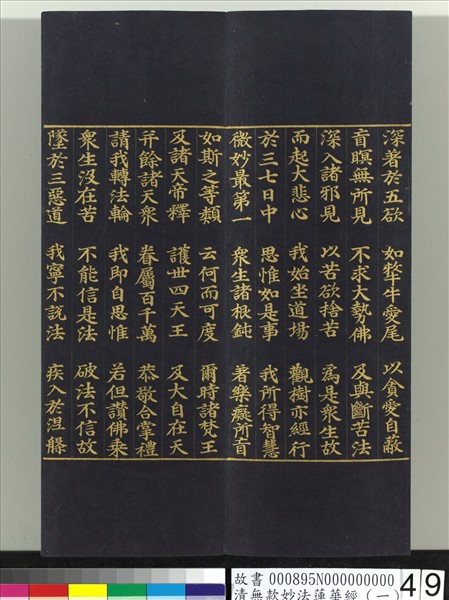 深著於五欲 如犛牛愛尾 以貪愛自蔽
盲瞑無所見 不求大勢佛 及與斷苦法
深入諸邪見 以苦欲捨苦 為是衆生故
而起大悲心 我始坐道場 觀樹亦經行
於三七日中 思惟如是事 我所得智慧
微妙最第一 衆生諸根鈍 著樂癡所盲
如斯之等類 云何而可度 爾時諸梵王
及諸天帝釋 護世四天王 及大自在天
并餘諸天衆 眷屬百千萬 恭敬合掌禮
請我轉法輪 我即自思惟 若但讚佛乘
衆生沒在苦 不能信是法 破法不信故
墜於三惡道 我寧不說法 疾入於涅槃
故書 000895N000000000
清無款妙法蓮華經(一)
49